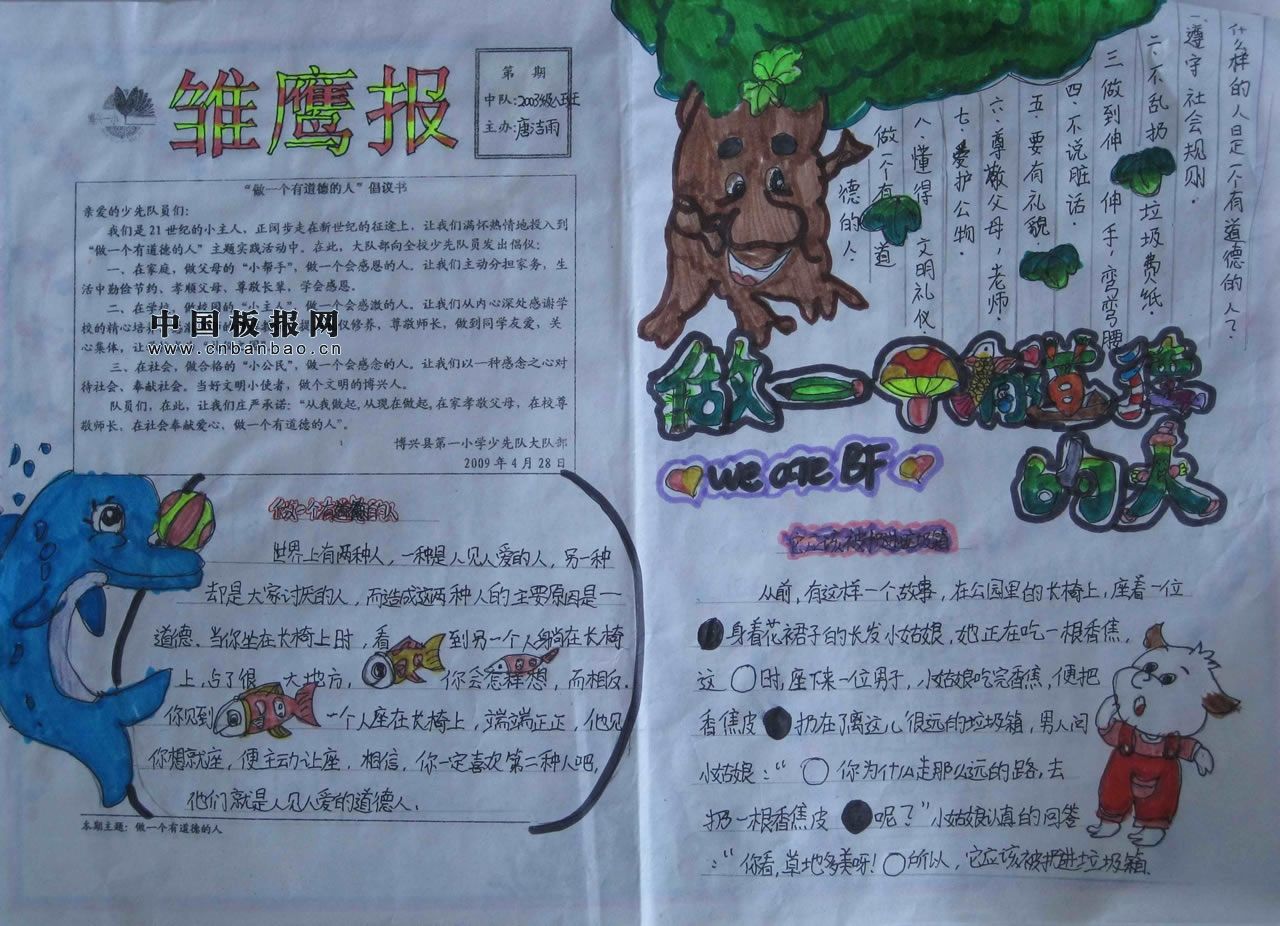 雏鹰报
第 期
中队:2003级八班
主办:唐洁雨
“做一个有道德的人”倡议书
亲爱的少先队员们:
我们是21世纪的小主人，正阔步走在新世纪的征途上，让我们满怀热情地投入到
“做一个有道德的人”主题实践活动中。在此，大队部向全校少先队员发出倡仪:
一、在家庭，做父母的“小帮手”，做一个会感恩的人。让我们主动分担家务，生
活中勤俭节约、孝顺父母、尊敬长辈，学会感恩。
二、在学校，做校园的“小主人”，做一个会感激的人。让我们从内心深处感谢学
校的精心培 仪修养，尊敬师长，做到同学友爱，关
心集体，让
三、在社会，做合格的“小公民”，做一个会感念的人。让我们以一种感念之心对
待社会、奉献社会。当好文明小使者，做个文明的博兴人。
队员们，在此，让我们庄严承诺:“从我做起,从现在做起,在家孝敬父母，在校尊
敬师长，在社会奉献爱心，做一个有道德的人”。
博兴县第一小学少先队大队部
2009年4月28日
中国板报网
www.cnbanbao.cn
做一个有道德的人
世界上有两种人，一种是人见人爱的人，另一种
却是大家讨厌的人，而造成这两种人的主要原因是一
道德。当你坐在长椅上时，看到另一个人躺在长椅
上，占了很大地方，你会怎样想，而相反.
你见到一个人座在长椅上，端端正正，他见
你想就座，便主动让座，相信，你一定喜欢第二种人吧，
他们就是人见人爱的道德人.
本期主题：做一个有道德的人
什么样的人是一个有道德的人？
一.遵守社会规则.
二.不乱扔垃圾费纸.
三.做到伸伸手，弯弯腰
四.不说脏话.
五.要有礼貌.
六.尊敬父母，老师.
七.爱护公物
八.懂得文明礼仪
做一个有道
德的人.
做一个有道德
的人
we are BF
它应该被扔进垃圾箱
从前，有这样一个故事，在公园里的长椅上，座着一位
身着花裙子的长发小姑娘，她正在吃一根香焦，
这时，座下来一位男子，小姑娘吃完香焦，便把
香焦皮扔在了离这儿很远的垃圾箱，男人问
小姑娘：“你为什么走那么远的路，去
扔一根香焦皮呢了”小姑娘认真的回答
：“你看，草地多美呀！所以，它应该被扔进垃圾箱.